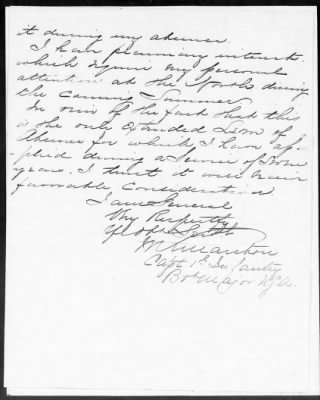 it during my absence.
I have pecuniary interests
which require my personal
attention at the North during
the coming Summer.
In view of the fact that this
is the only Extended Leave of
Absence for which I have ap-
-plied during a Service of
years. I trust it will receive
favorable Consideration
I am General
Very Respectfully
Yr Obt Servt
Capt 1st Infantry
Bvt Major U.S.A.